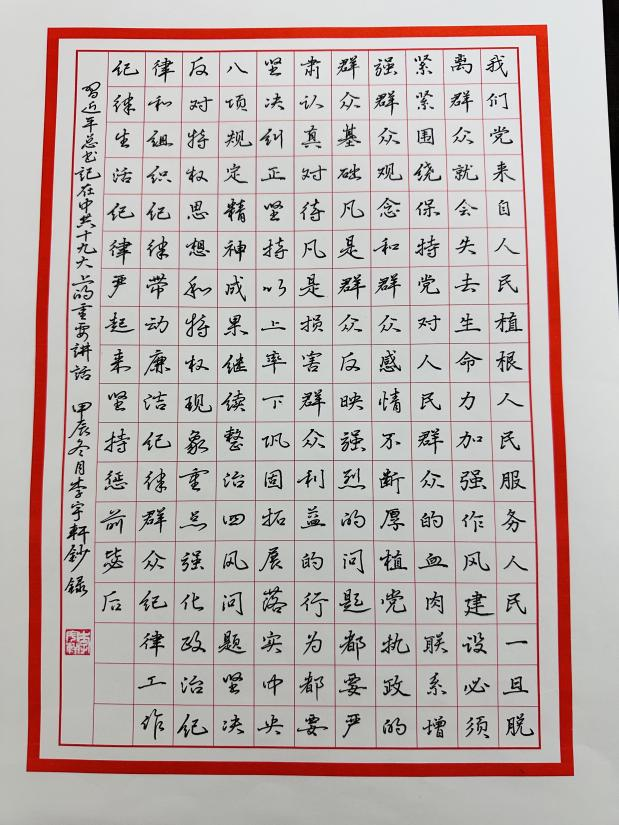 我们党来自人民植根人民服务人民一旦脱
离群众就会失去生命力加强作风建设必须
紧紧围绕保持党对人民群众的血肉联系增
强群众观念和群众感情不断厚植党执政的
群众基础凡是群众反映强烈的问题都要严
肃认真对待凡是损害群众利益的行为都要
坚决纠正坚持以上率下巩固拓展落实中央
八项规定精神成果继续整治四风问题坚决
反对特权思想和特权现象重点强化政治纪
律和组织纪律带动廉洁纪律群众纪律工作
纪律生活纪律严起来坚持惩前毖后
習近平总书記在中共十九大上的重要讲话 甲辰冬月李宇軒鈔錄